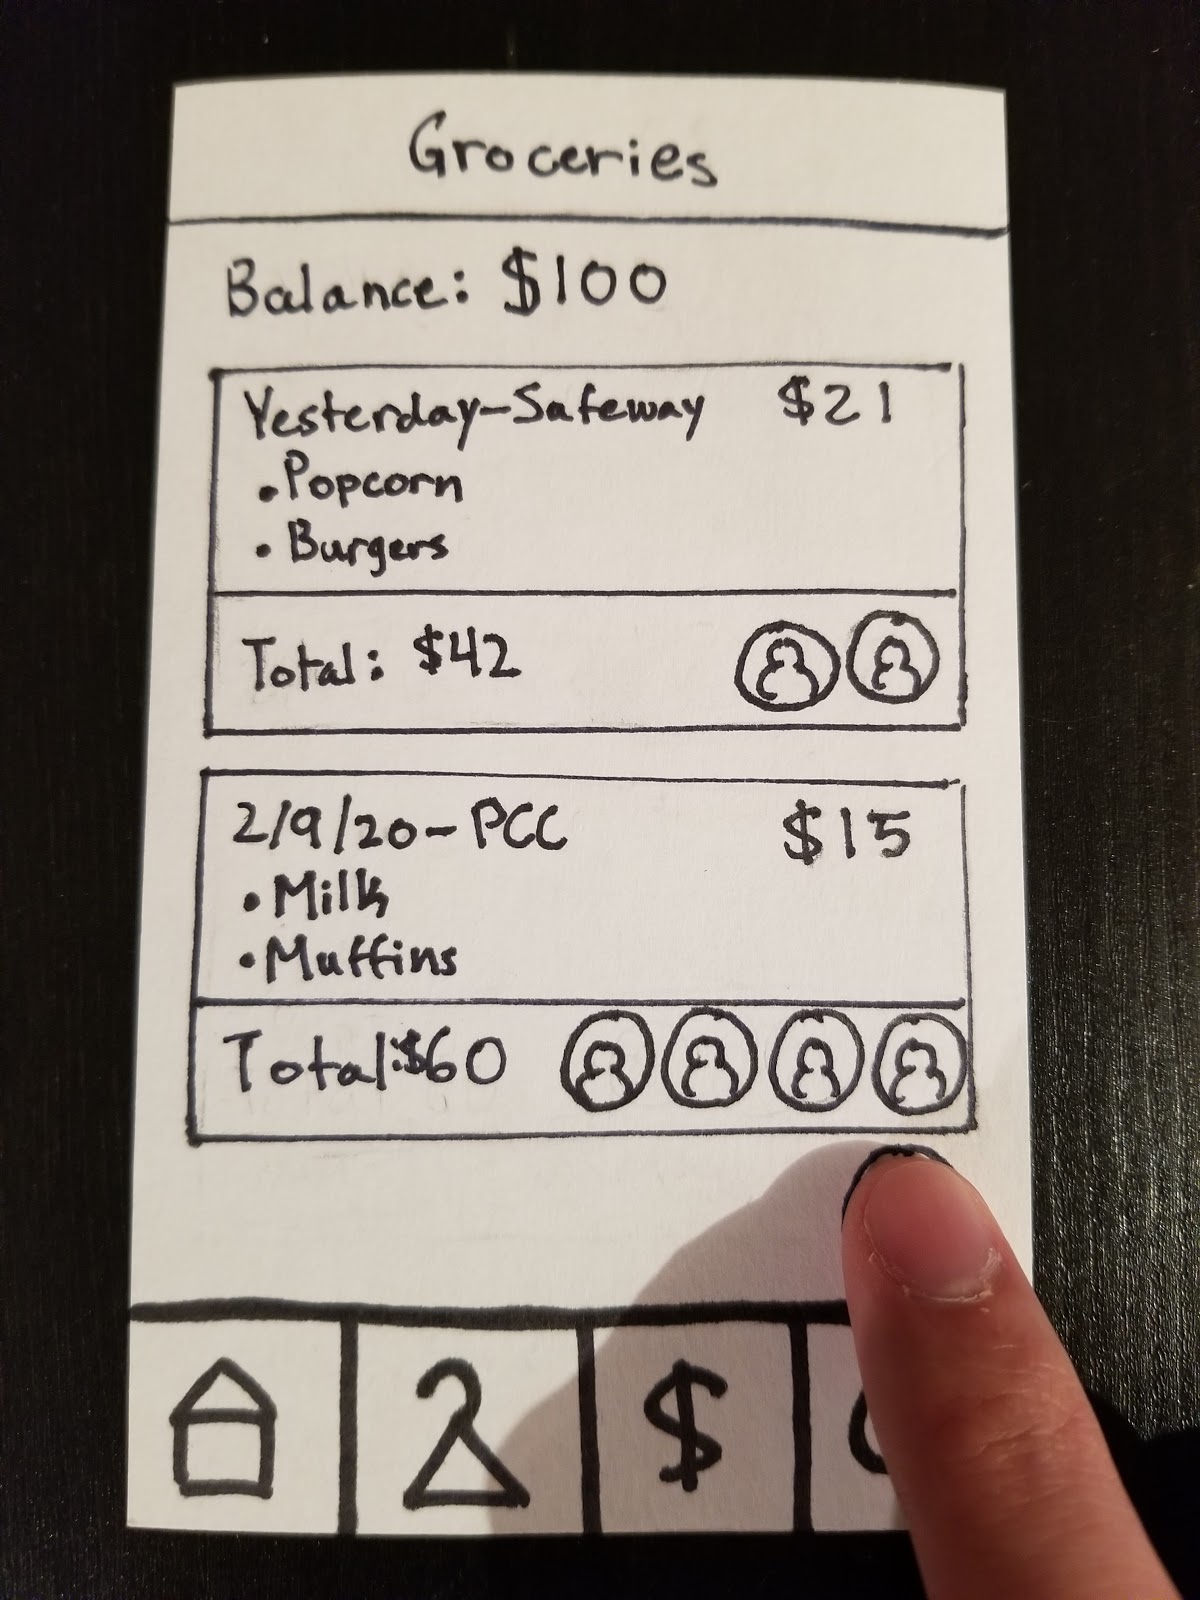 Groceries
Balance: $100
Yesterday-Safeway $21
• Popcorn
• Burgers
Total: $42
2/9/20- PCC $15
• Milk
• Muffins
Total:$60
$